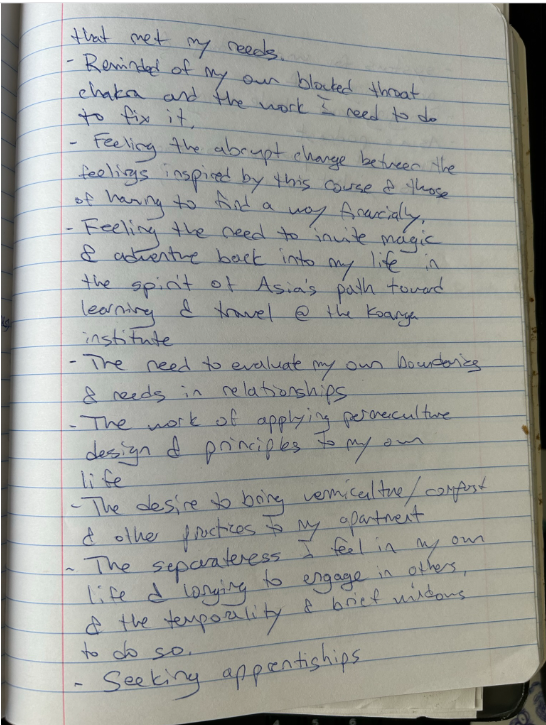 that met my needs.
- Reminded of my own blocked throat
chakra and the work I need to do
to fix it.
- Feeling the abrupt change between the
feelings inspired by this course & those
of having to find a way financially.
- Feeling the need to invite magic
& adventure back into my life in
the spirit of Asia's path toward
learning & travel @ the Koanga
institute
- The need to evaluate my own boundaries
& needs in relationships
- The work of applying permaculture
design & principles to my own
life
- The desire to bring vermiculture/compost
& other practices to my apartment
- The separateness I feel in my own
life & longing to engage in others,
& the temporality & brief windows
to do so.
- Seeking apprentiships